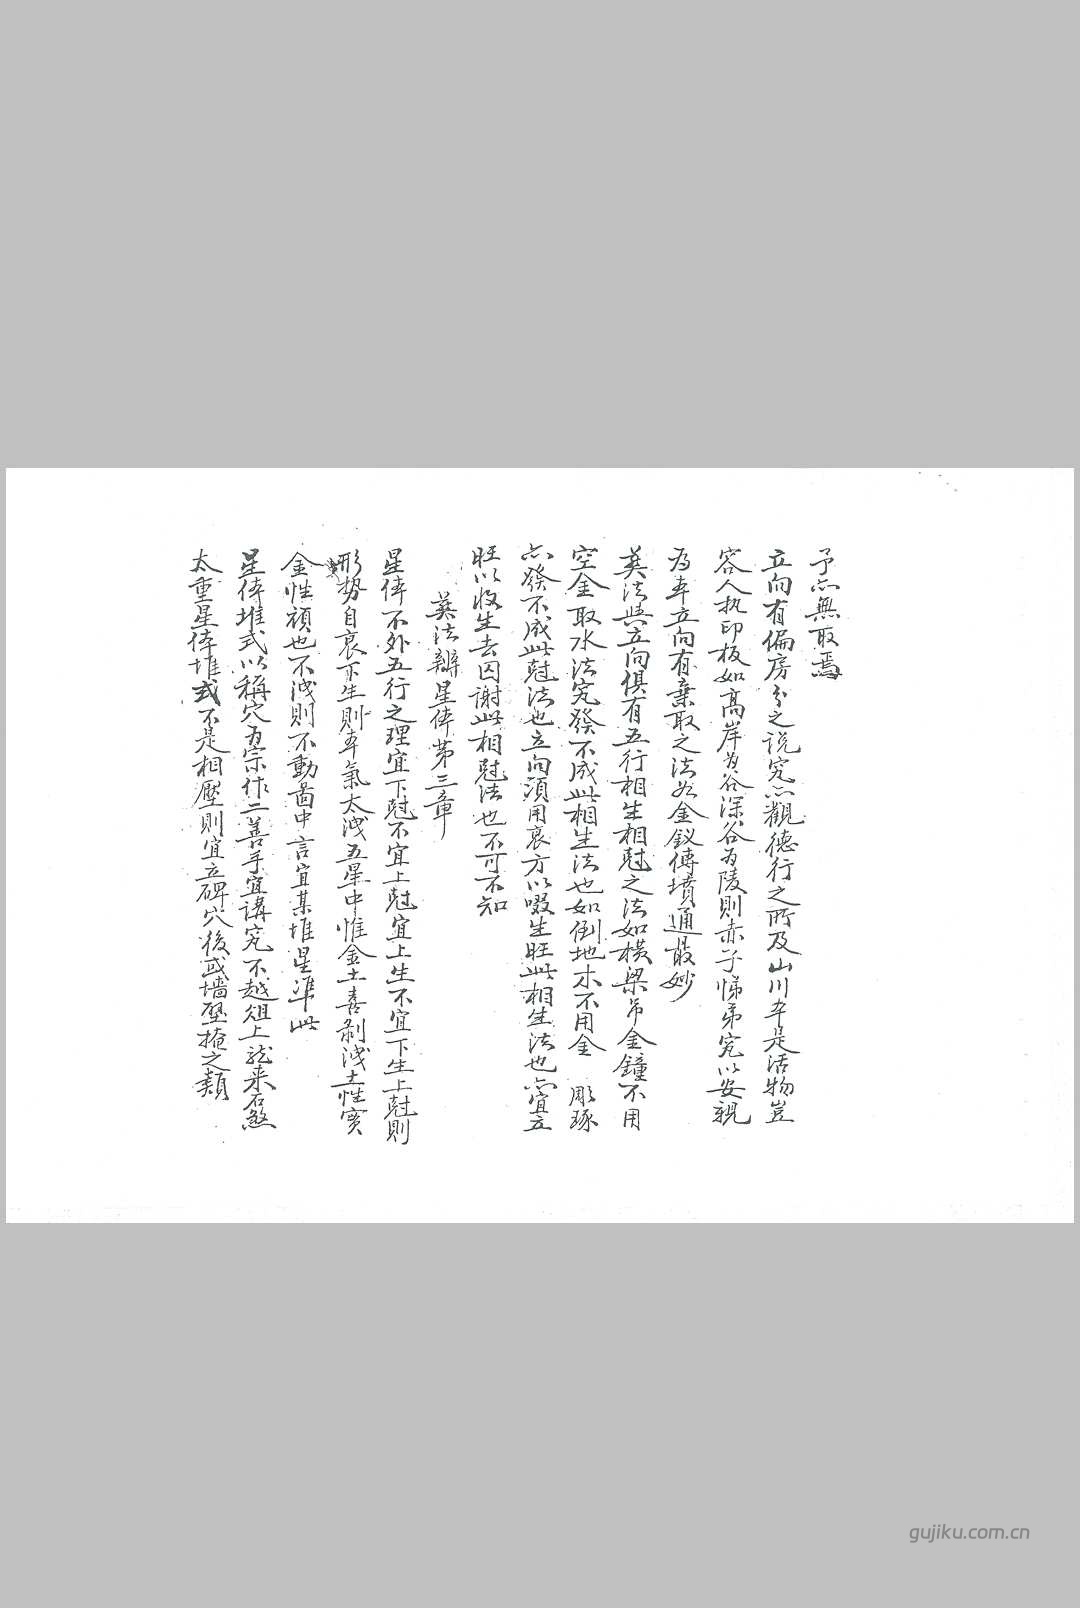 予亦無取焉
立向有偏房分之說究亦觀德行之所及山川本是活物豈
容人执印板如高岸为谷深谷为陵則赤子悌弟究以安親
為本立向有棄取之法如金釵傳墳通最妙
葬法與立向俱有五行相生相尅之法如橫梁吊金鐘不用
空金取水法究發不成此相生法也如倒地木不用金 彫琢
亦發不成此尅法也立向須用衰方以啜生旺此相生法也亦宜立
旺以收生去囚謝此相尅法也不可不知
葬法辦星体苐三章
星体不外五行之理宜下尅不宜上尅宜上生不宜下生上尅則
形势自衰下生則本氣太洩五星中惟金土喜剥洩土性实
金性頑也不洩則不動啚中言宜某堆星準此
星体堆式以稱穴为宗作二善手宜講究不越俎上龙来石煞
太重星体堆式不是相壓則宜立碑穴後或墙壁掩之類
gujiku.com.cn